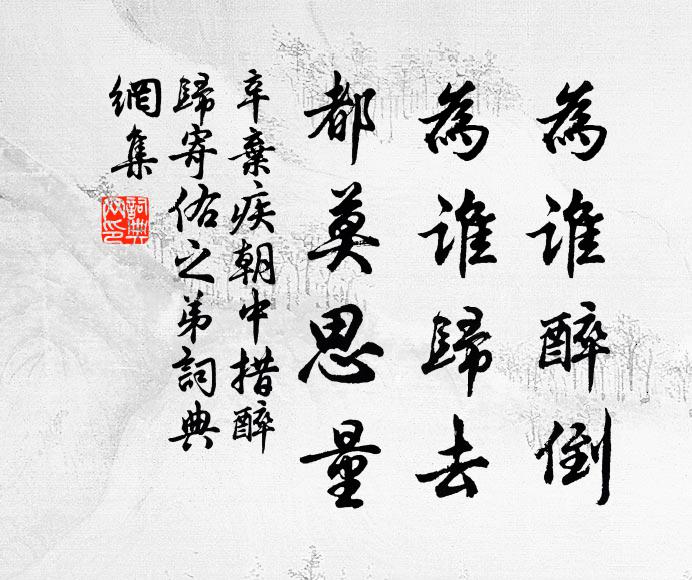 為谁醉倒
為谁歸去
都莫思量
辛棄疾朝中措醉
歸寄佑之弟詞典
網集
詞典
网印